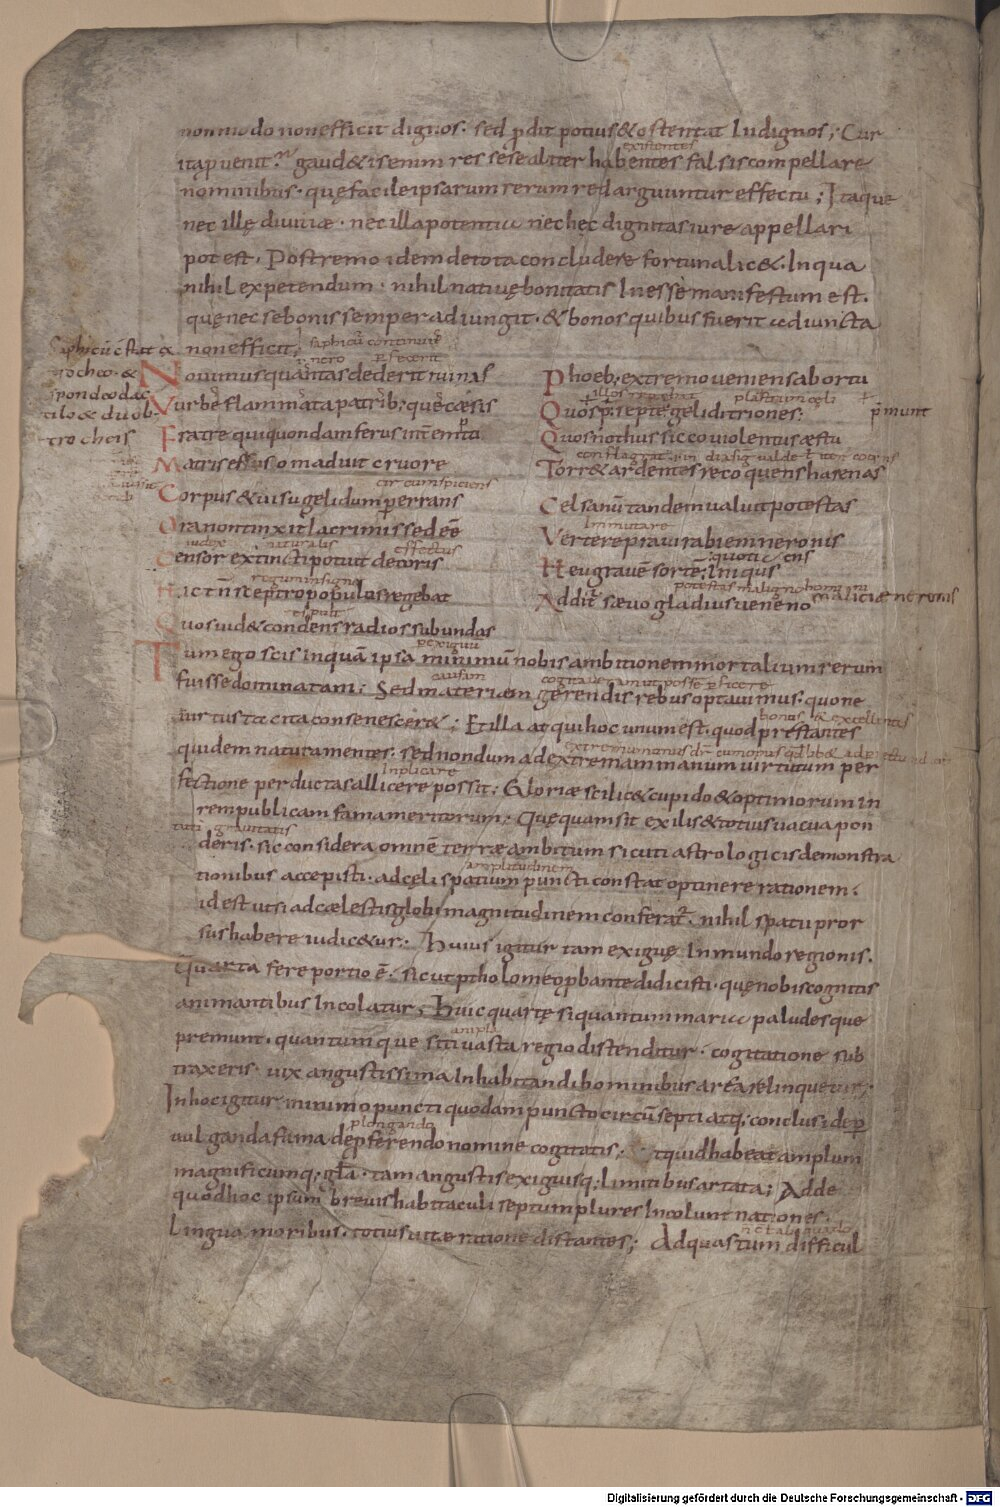 non modo non efficit dignos. sed ꝓdit potius & ostentat Indignos; Cur
ita ꝓuenit? gaud&is enim res sese aliter habentes falsis compellare
existentes
nominibus. quę facile ipsarum rerum redarguuntur effectu; Itaque
nec illę diuitiæ. nec illa potentia nec hec dignitas iure appellari
potest. Postremo idem de tota concludere fortuna lic&. In qua
nihil expetendum. nihil natiuę bonitatis Inesse manifestum est.
quę nec se bonis semper adiungit. & bonos quibus fuerit adiuncta
non efficit;
saphicū continuē
saphicū c̄stat ex
trocheo. &
spondeo dac
tilo & duob.
trocheis
nero
Nouimus quantas dederit ruinas
Vurbe flammata patrib; quę cæsis
Fratre qui quondam ferus interempto
Matris effuso maduit cruore
circumspiciens
Corpus & uisu gelidum perrans
Ora non tinxit lacrimis sed eē
iudex
effectus
Censor extincti potuit decoris
regum insigne
Hic tn̄ sceptro populos regebat
Quos uid& condens radios sub undas
Phoeb; extremo ueniens ab ortu
illos
plaustrum cęli
Quos p̄. septē gelidi triones;
p̄munt
Quos nothus sicco uiolentus æstu
Torr& ardentes recoquens harenas
Celsa nū tandem ualuit potestas
Inmutare
Vertere praui rabiem neronis
Heu grauē sortē; Iniqus
Addit̄ sæuo gladius ueneno
maliciæ neronis
Tum ego scis inquā ipsa minimū nobis ambitionem mortalium rerum
causam
fuisse dominatam; Sed materiam gerendis rebus optauimus; quo ne
uirtus tacita consenescer&; Et illa atqui hoc unum est. quod prestantes
bonas & excellentes
quidem natura mentes. sed nondum ad extremam manum uirtutum per
Inplicare
fectione perductas allicere possit; Gloriæ scilic& cupido & optimorum in
rempublicam fama meritorum; Quę quam sit exilis & totius uacua pon
grauitatis
deris. sic considera omnē terræ ambitum sicuti astrologicis demonstra
amplitudinem
tionibus accepisti. ad cęli spatium puncti constat optinere rationem.
id est ut si ad cælestis globi magnitudinem conferat̄. nihil spatii pror
sus habere iudic&ur. Huius igitur tam exiguę In mundo regionis.
Quarta fere portio ē. sicut ptholomeo ꝓbante didicisti. quę nobis cognitis
animantibus Incolatur; Huic quartę si quantum maria paludesque
ampla
premunt. quantumque siti uasta regio distenditur. cogitatione sub
traxeris. uix angustissima Inhabitandi hominibus area relinquetur;
In hoc igitur minimo puncti quodam puncto circūsepti atq; conclusi; de ꝑ
plongando
uulganda fama de ꝓferendo nomine cogitatis; tquid habeat amplum
magnificumq; gła. tam angustis exiguisq; limitibus artata; Adde
quod hoc ipsum breuis habitaculi septum plures Incolunt nationes.
Lingua moribus. totius uitæ ratione distantes; Ad quas tum difficul
Digitalisierung gefördert durch die Deutsche Forschungsgemeinschaft - DFG